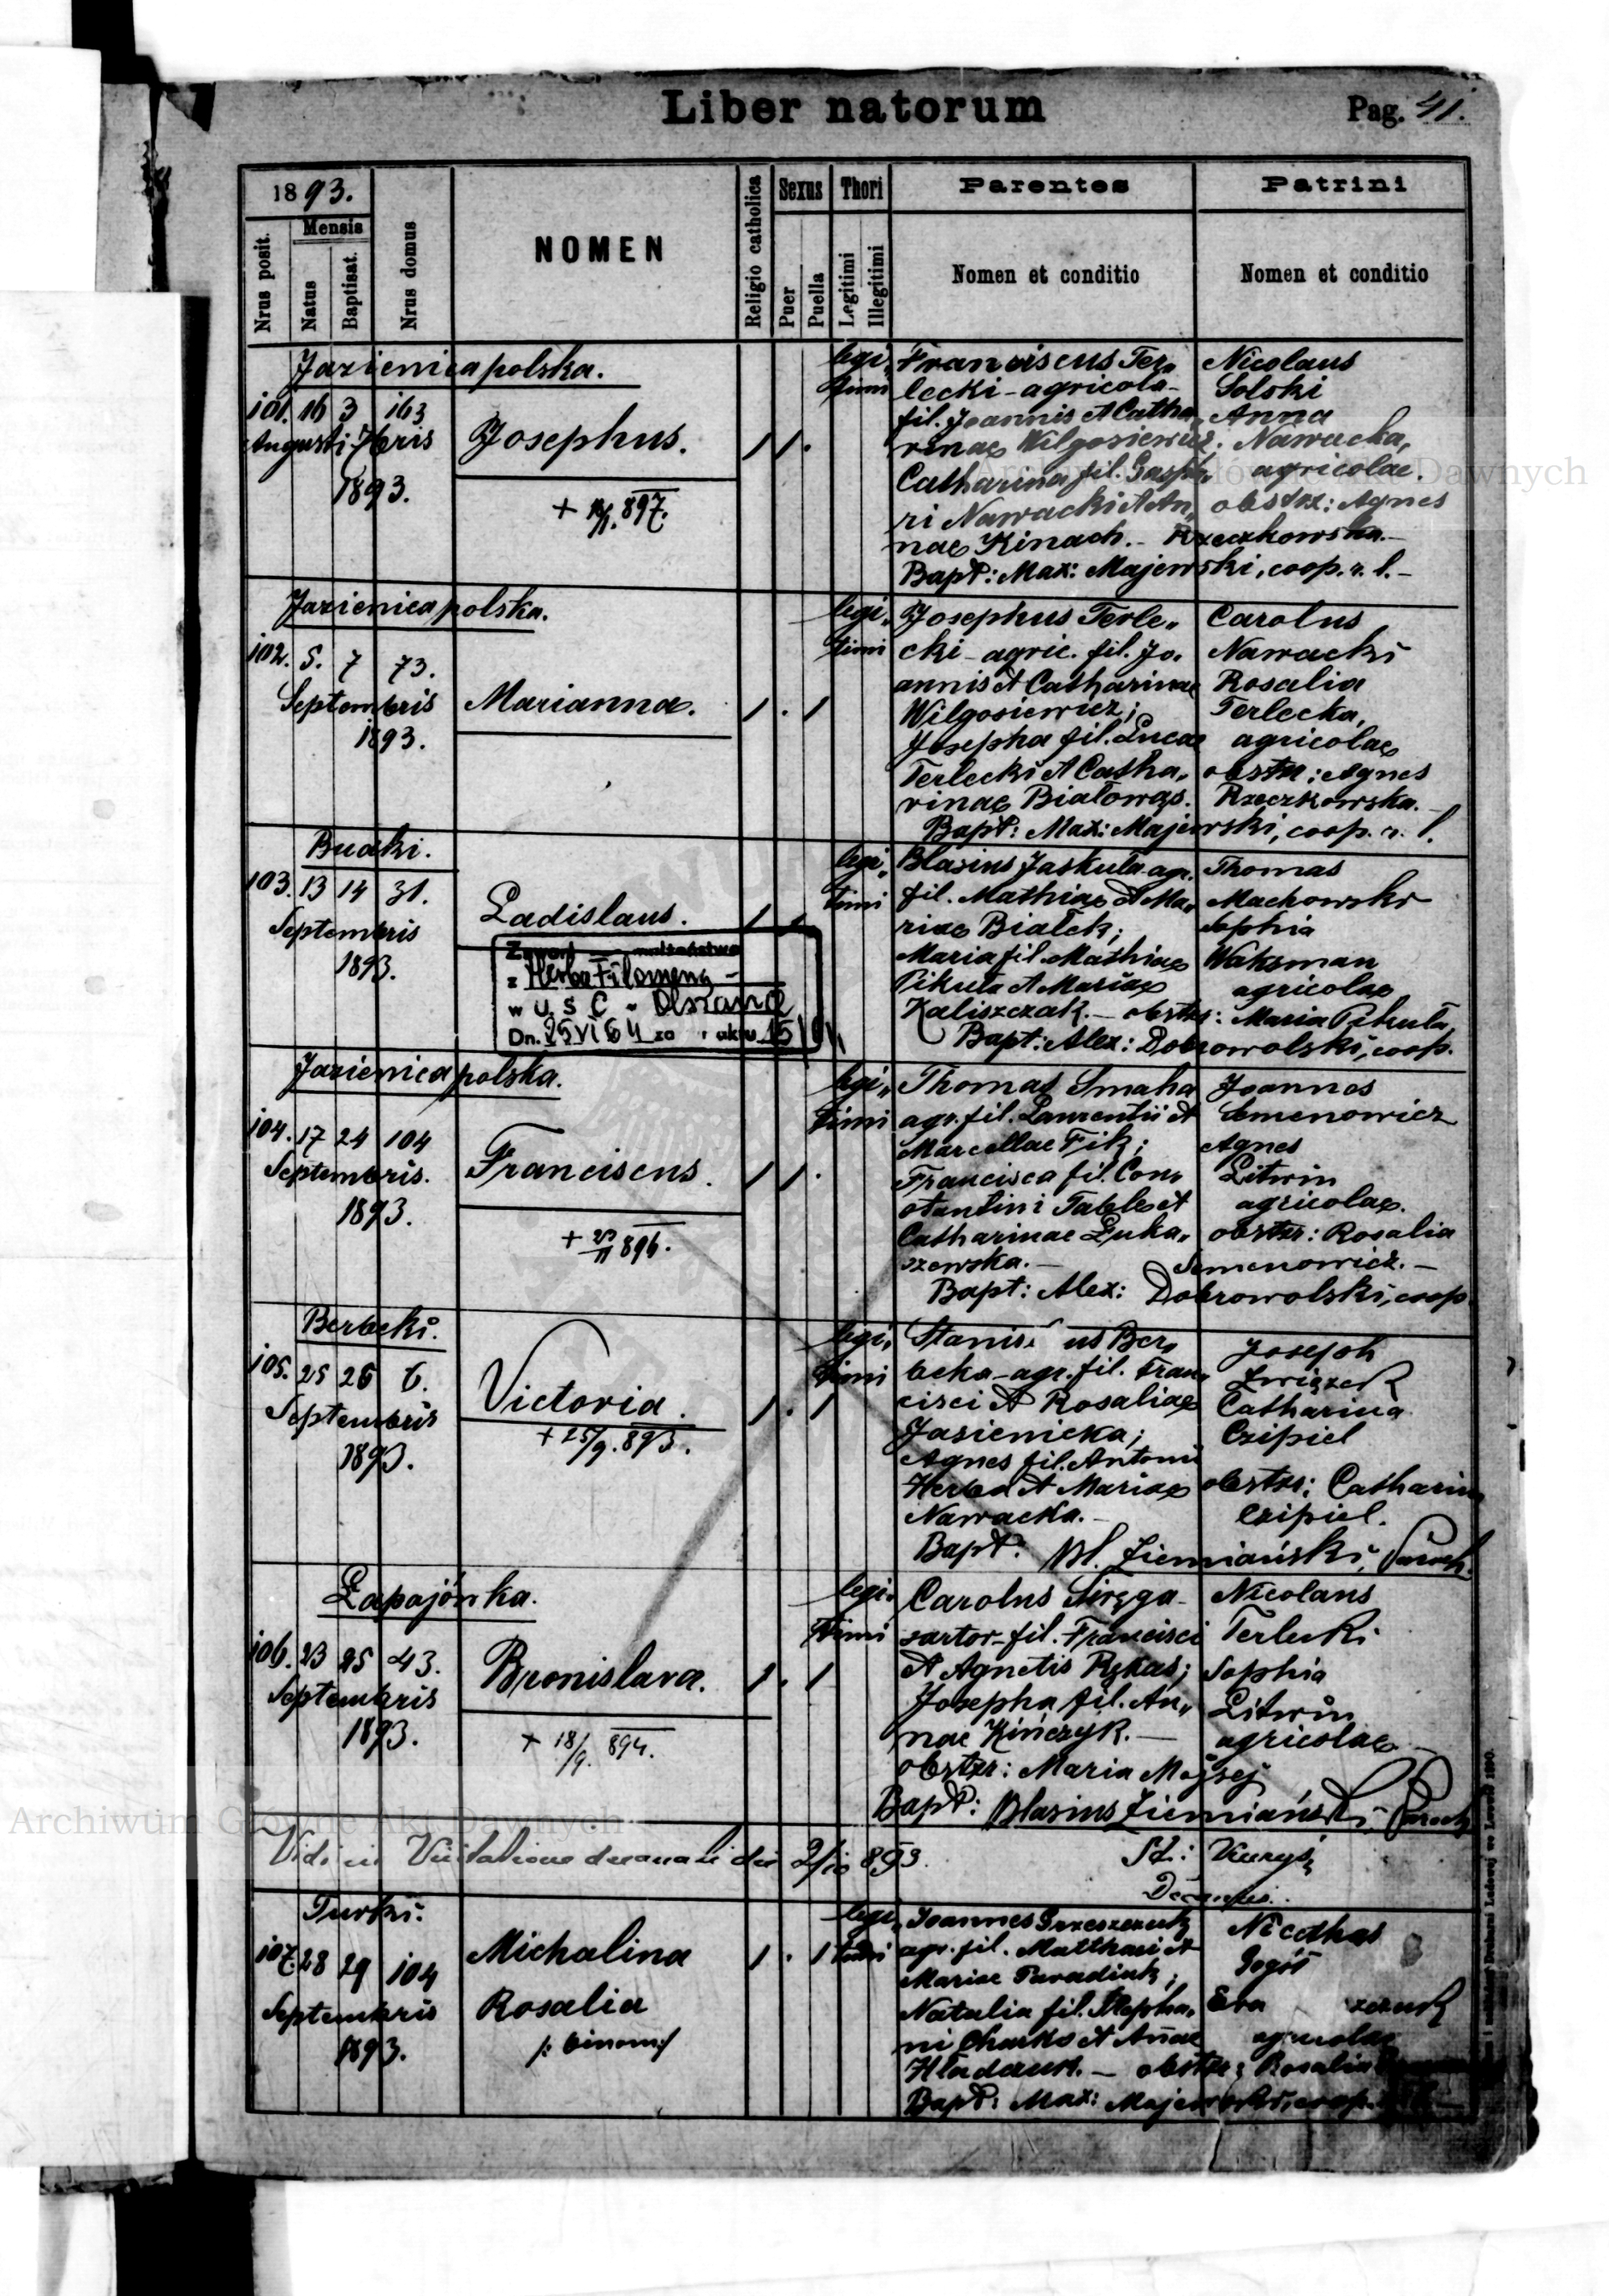 Liber natorum
Pag. 41.
1893.
Nrus posit.
Mensis
Natus
Baptisat.
Nrus domus
NOMEN
Religio catholica
Sexus
Puer
Puella
Thori
Legitimi
Illegitimi
Parentes
Nomen et conditio
Patrini
Nomen et conditio
Jazienica polska.
101. 16 3 163
Augusti 7bris
1893.
Josephus.
+ 897.
1 1 .
legi„
timi
Franciscus Ter„
lecki - agricola -
fil. Joannis et Catha„
rinae Wilgosiewicz.
Catharina fil. Gaspa„
ri Nawacki et An„
nae Kinach. -
Nicolaus
Solski
Anna
Nawacka,
agricolae.
obstrx: Agnes
Rzeczkowska. -
Bapt: Max: Majewski, coop. r. l. -
Jazienica polska.
102. 5. 7 73.
Septembris
1893.
Marianna.
1 . 1
legi„
timi
Josephus Terle„
cki - agric. fil. Jo„
annis et Catharinae
Wilgosiewicz;
Josepha fil. Lucae
Terlecki et Catha„
rinae Białowąs.
Carolus
Nawacki
Rosalia
Terlecka,
agricolae
obstx: Agnes
Rzeczkowska. -
Bapt: Max: Majewski, coop. r. l.
Budki.
103. 13 14 31.
Septembris
1893.
Ladislaus.
Zawarł małżeństwo
z Herba Filomena -
w U.S.C -
Dn. 25 VI 64 za r akt
1 1
legi„
timi
Blasius Jaskuła agr.
fil. Mathiae et Ma„
riae Białek;
Maria fil. Mathiae
Pikuła et Mariae
Kaliszczak. -
Thomas
Machowski
Sophia
Waksman
agricolae
obstx: Maria Pikuła,
Bapt: Alex: Dobrowolski, coop.
Jazienica polska.
104. 17 24 104
Septembris.
1893.
Franciscus.
+ 896.
1 1 .
legi„
timi
Thomas Smaha
agr. fil. Laurentii et
Marcellae Fik;
Francisca fil. Con„
stantini Table et
Catharinae Łuka„
szewska. -
Joannes
Semenowicz
Agnes
Litwin
agricolae.
obstrx: Rosalia
Semenowicz. -
Bapt: Alex: Dobrowolski, coop.
Berbeki.
105. 25 26 6.
Septembris
1893.
Victoria.
+ 25/9. 893.
1 . 1
legi„
timi
Stanis us Ber„
beka - agr. fil. Fran„
cisci et Rosaliae
Jasienicka;
Agnes fil. Antonii
Herba et Mariae
Nawacka. -
Joseph
Związek
Catharina
Czipiel
obstx: Catharina
Czipiel.
Bapt: Bl. Ziemiański, Paroch.
Łapajówka.
106. 23 25 43.
Septembris
1893.
Bronislava.
+ 18/9. 894.
1 . 1
legi„
timi
Carolus Siręga -
sartor - fil. Francisci
et Agnetis Rękas;
Josepha fil. An„
nae Kińczyk. -
obstrx: Maria Mojsej
Nicolaus
Terlecki
Sophia
Litwin
agricolae -
Bapt: Blasius Ziemiański, Paroch
Vidi in Visitatione decanali die 2/10 893.
Decanus.
Turki.
107. 28 29 104
Septembris
1893.
Michalina
Rosalia
/: binom:/
1 . 1
legi„
timi
Joannes Grzeszczuk
agr. fil. Matthaei et
Mariae Paradiuk;
Natalia fil. Stepha„
ni Charko et Annae
Eva
agricolae
obstx: Rosalia
Bapt: Max: Majewski, coop.
Archiwum Główne Akt Dawnych
Archiwum Główne Akt Dawnych